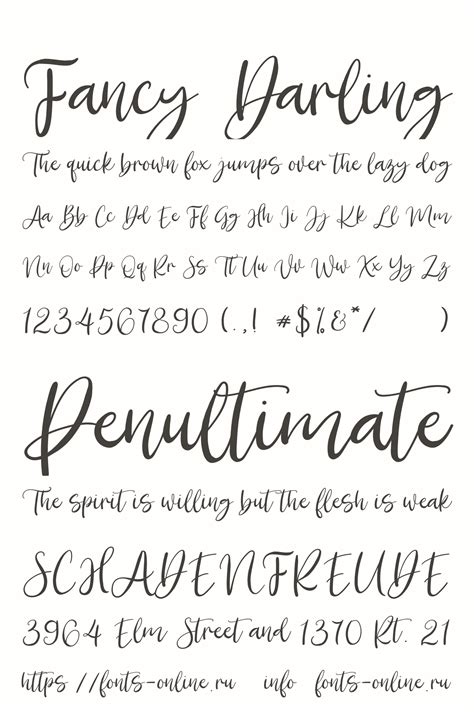 Fancy Darling
The quick brown fox jumps over the lazy dog
Aa Bb Cc Dd Ee Ff Gg Hh Ii Jj Kk Ll Mm
Nn Oo Pp Qq Rr Ss Tt Uu Vv Ww Xx Yy Zz
1234567890 (.,! #$%&*/ )
Penultimate
The spirit is willing but the flesh is weak
SCHADENFREUDE
3964 Elm Street and 1370 Rt. 21
https //fonts-online.ru info fonts-online.ru